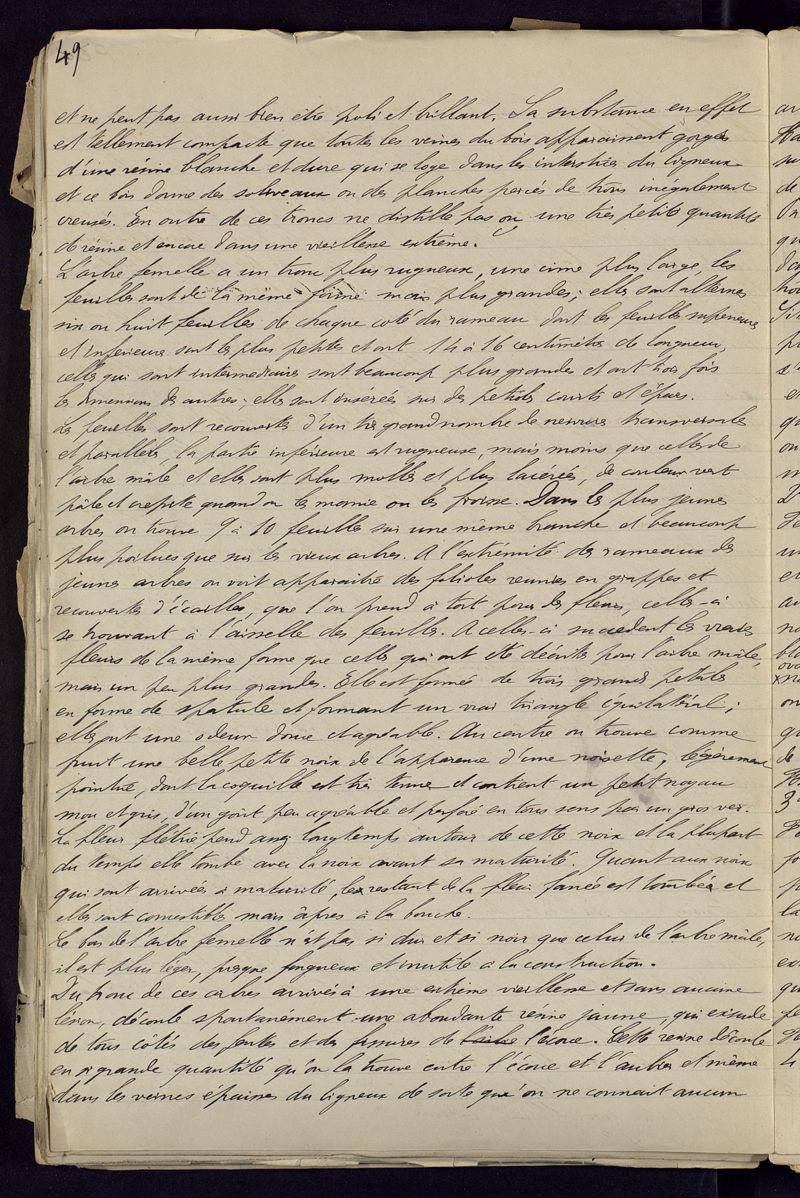 49
et ne peut pas aussi bien être poli et brillant. La substance en effet
est tellement compacte que toutes les veines du bois apparaissent gorgées
d'une résine blanche et dure qui se loge dans les interstices du ligneux
et ce bois donne des soliveaux ou des planches percés de trous inégalement
creusés. En outre de ces troncs ne distille pas ou une très petite quantité
de résine et encore dans une vieillesse extrême.
L'arbre femelle a un tronc plus rugueux, une cime plus large, les
feuilles sont de la même forme mais plus grandes; elles sont alternes
six ou huit feuilles de chaque coté du rameau dont les feuilles superieures
et inférieures sont les plus petites et ont 14 à 16 centimètres de longueur,
celles qui sont intermediaires sont beaucoup plus grandes et ont trois fois
les dimensions des autres; elles sont inserées sur des petioles courts et épais.
Les feuilles sont recouvertes d'un très grand nombre de nervures transversales
et parallèles, la partie inférieure est rugueuse, mais moins que celles de
l'arbre mâle et elles sont plus molles et plus lacérées, de couleur vert
pâle et crepite quand on les manie ou les froisse. Dans les plus jeunes
arbres on trouve 9 à 10 feuilles sur une même branche et beaucoup
plus poilues que sur les vieux arbres. A l'extrémité des rameaux des
jeunes arbres on voit apparaitre des folioles reunies en grappes et
recouvertes d'écailles, que l'on prend à tort pour des fleurs, celles-ci
se trouvant à l'aisselle des feuilles. A celles-ci succedent les vraies
fleurs de la même forme que celles qui ont été décrites pour l'arbre mâle,
mais un peu plus grandes. Elle est formée de trois grands petales
en forme de spatule et formant un vrai triangle équilatéral;
elles ont une odeur douce et agréable. Au centre on trouve comme
fruit une belle petite noix de l'apparence d'une noisette, légèrement
pointue, dont la coquille est très tenue et contient un petit noyau
mou et gris, d'un goût peu agréable et perforé en tous sens par un gros ver.
La fleur flétrie pend assez longtemps autour de cette noix et la plupart
du temps elle tombe avec la noix avant sa maturité. Quant aux noix
qui sont arrivées à maturité, le restant de la fleur fanée est tombée et
elles sont comestibles mais âpres à la bouche.
Le bois de l'arbre femelle n'est pas si dur et si noir que celui de l'arbre mâle,
il est plus léger, presque fongueux et inutile à la construction.
Du tronc de ces arbres arrivés à une extrême vieillesse et sans aucune
lésion, découle spontanément une abondante resine jaune, qui exsude
de tous cotés des fentes et des fissures de l'écorce. Cette resine découle
en si grande quantité qu'on la trouve entre l'écorce et l'aubier et même
dans les veines épaisses du ligneux de sorte qu'on ne connait aucun